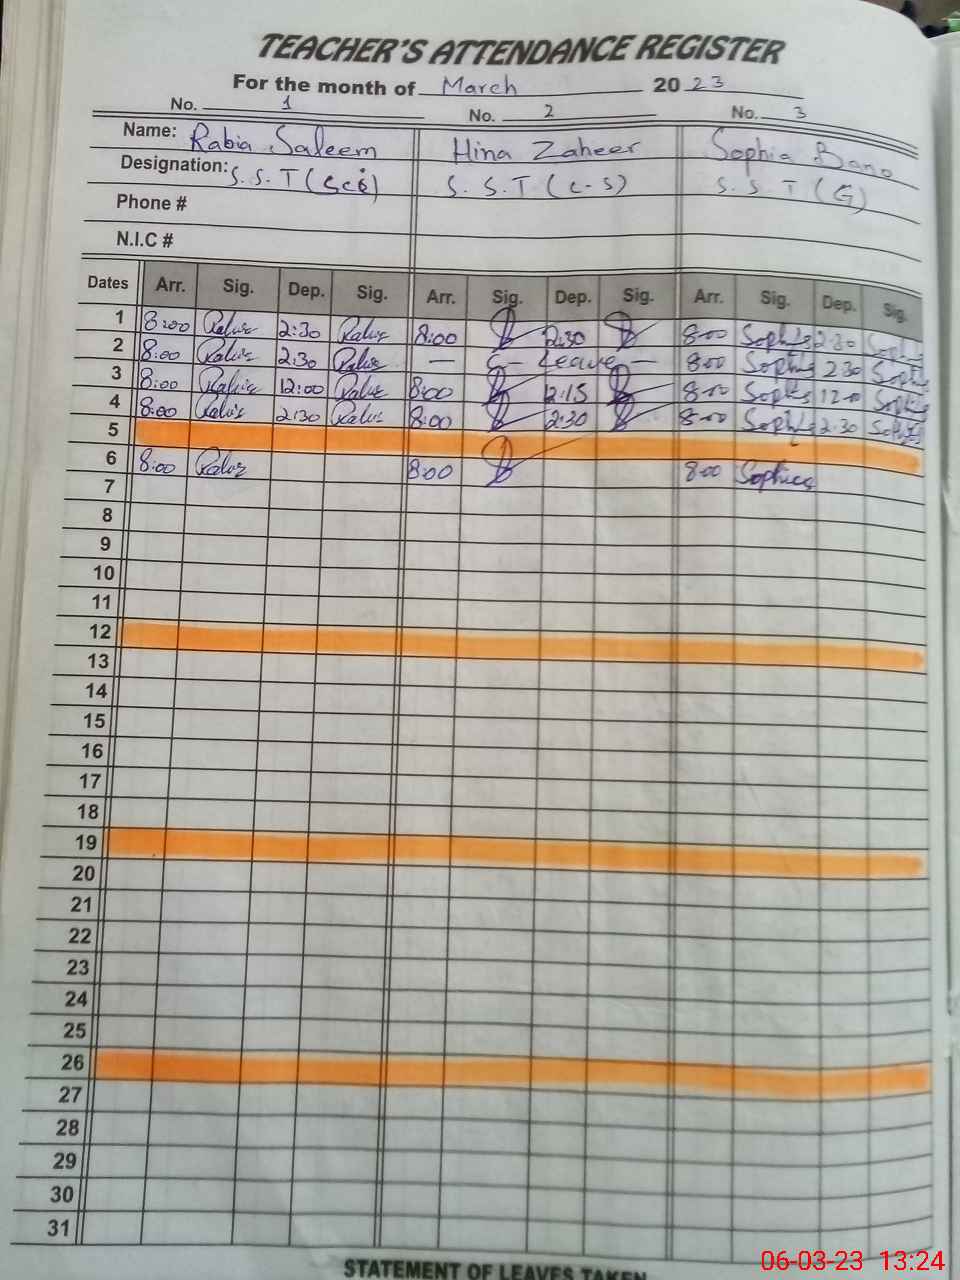 TEACHER'S ATTENDANCE REGISTER
For the month of March 2023
No. 1 No. 2 No. 3
Name: Rabia Saleem Hina Zaheer Sophia Bano
Designation: S.S.T (Sci) S.S.T (C-S) S.S.T (G)
Phone #
N.I.C #
Dates Arr. Sig. Dep. Sig. Arr. Sig. Dep. Sig. Arr. Sig. Dep. Sig.
1 8:00 Rabia 2:30 Rabia 8:00 2:30 8:00 Sophia 2:30 Sophia
2 8:00 Rabia 2:30 Rabia — C – Leave — 8:00 Sophia 2:30 Sophia
3 8:00 Rabia 12:00 Rabia 8:00 12:15 8:00 Sophia 12:00 Sophia
4 8:00 Rabia 2:30 Rabia 8:00 2:30 8:00 Sophia 2:30 Sophia
5
6 8:00 Rabia 8:00 8:00 Sophia
7
8
9
10
11
12
13
14
15
16
17
18
19
20
21
22
23
24
25
26
27
28
29
30
31
STATEMENT OF LEAVES TAKEN
06-03-23 13:24